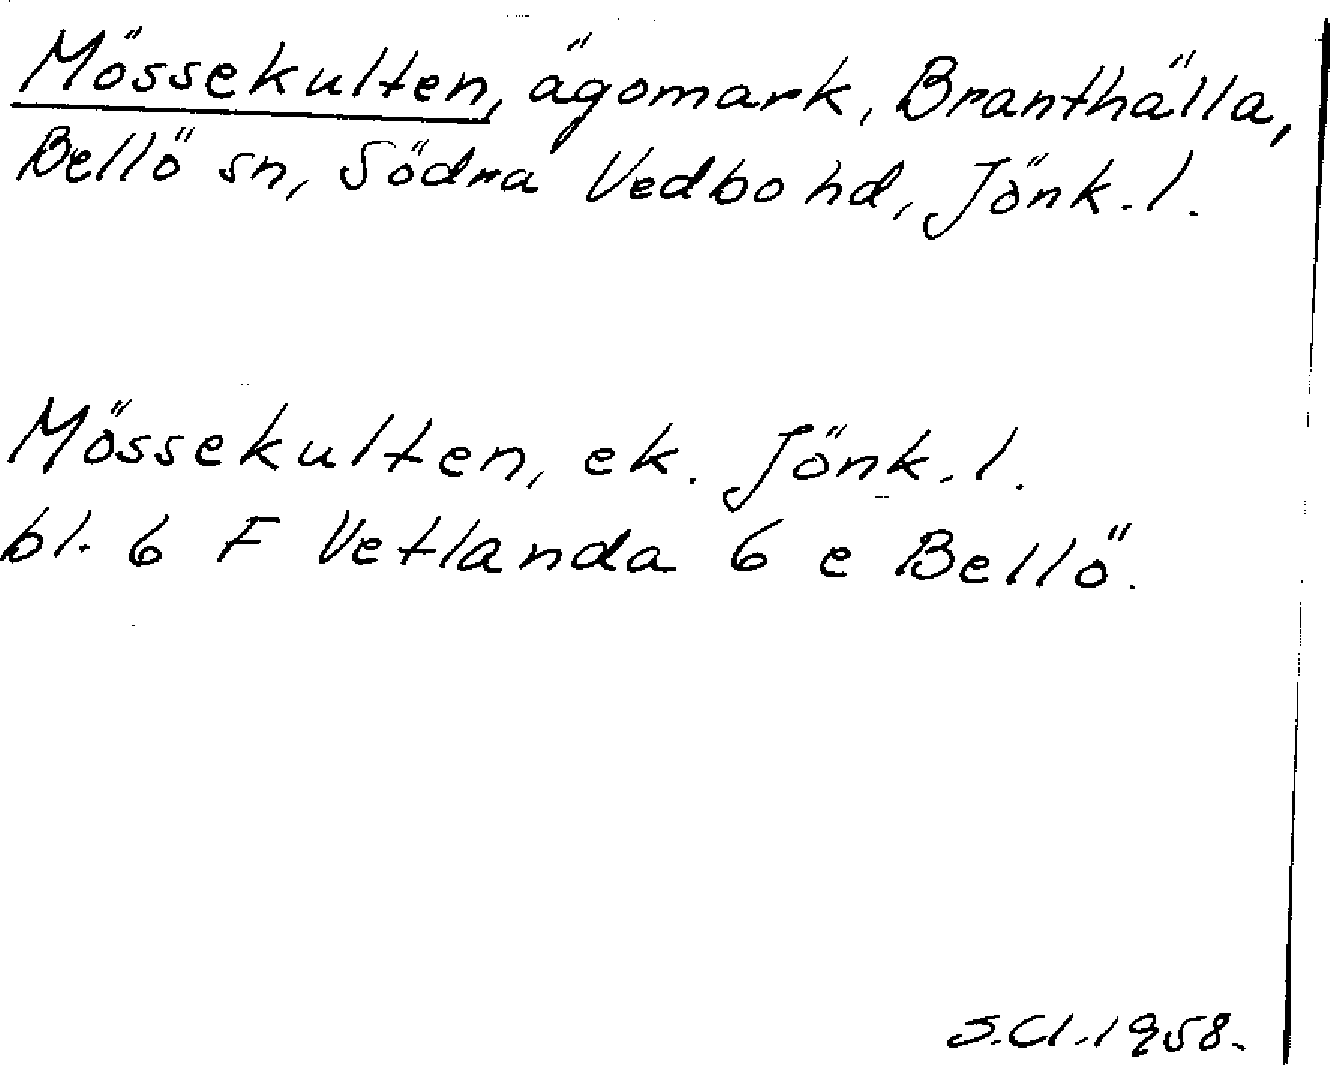 Mössekulten, ägomark, Branthälla,
Bellö sn, Södra Vedbo hd, Jönk. l.
Mössekulten, ek. Jönk. l.
bl. 6 F Vetlanda 6 e Bellö.
S.Cl. 1958.